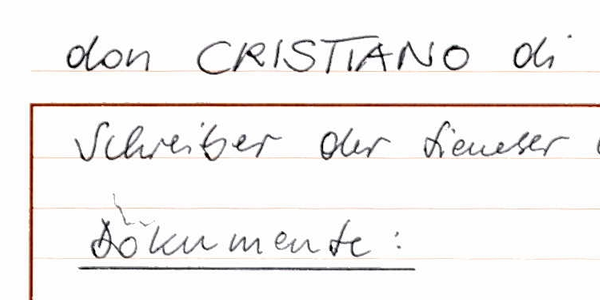 don CRISTIANO di
Schreiber der Sieneser
Dokumente: